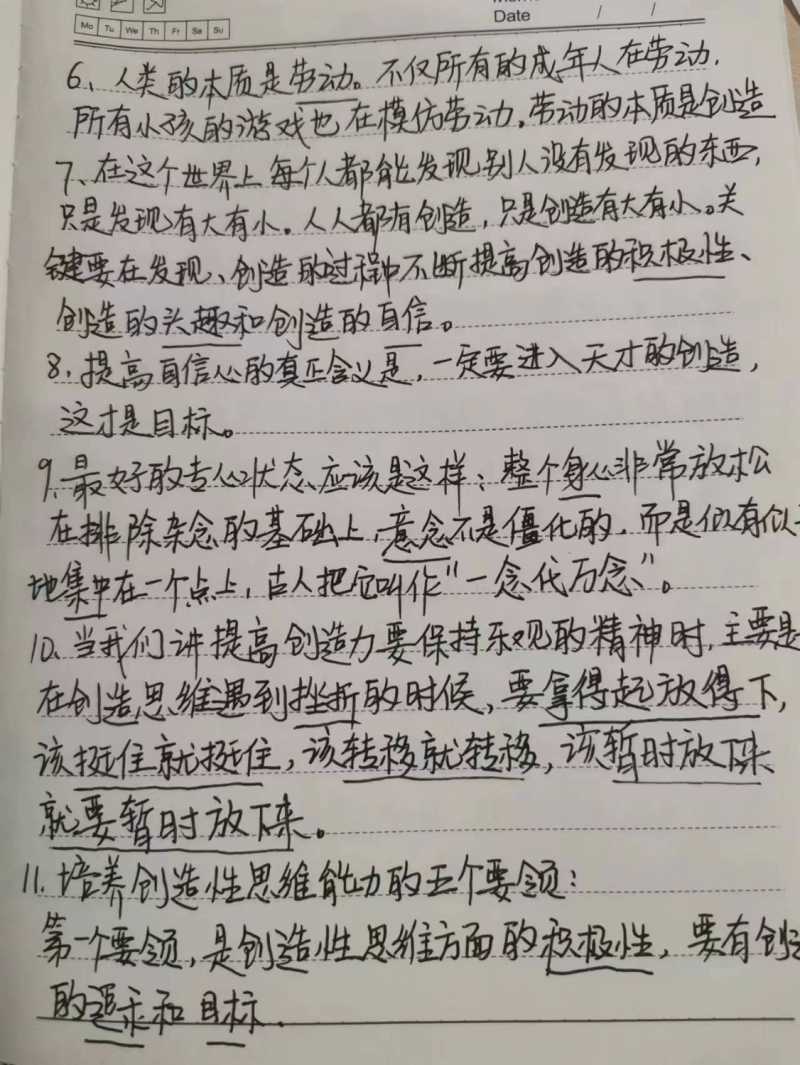 Date / /
Mo Tu We Th Fr Sa Su
6、人类的本质是劳动。不仅所有的成年人在劳动，
所有小孩的游戏也在模仿劳动。劳动的本质是创造
7、在这个世界上每个人都能发现别人没有发现的东西，
只是发现有大有小。人人都有创造，只是创造有大有小。关
键要在发现、创造的过程中不断提高创造的积极性、
创造的兴趣和创造的自信。
8、提高自信心的真正含义是，一定要进入天才的创造，
这才是目标。
9、最好的专心状态应该是这样：整个身心非常放松
在排除杂念的基础上，意念不是僵化的，而是似有似
地集中在一个点上，古人把它叫作“一念代万念”。
10、当我们讲提高创造力要保持乐观的精神时，主要是
在创造思维遇到挫折的时候，要拿得起放得下，
该挺住就挺住，该转移就转移，该暂时放下来
就要暂时放下来。
11、培养创造性思维能力的五个要领：
第一个要领，是创造性思维方面的积极性，要有创造
的追求和目标.